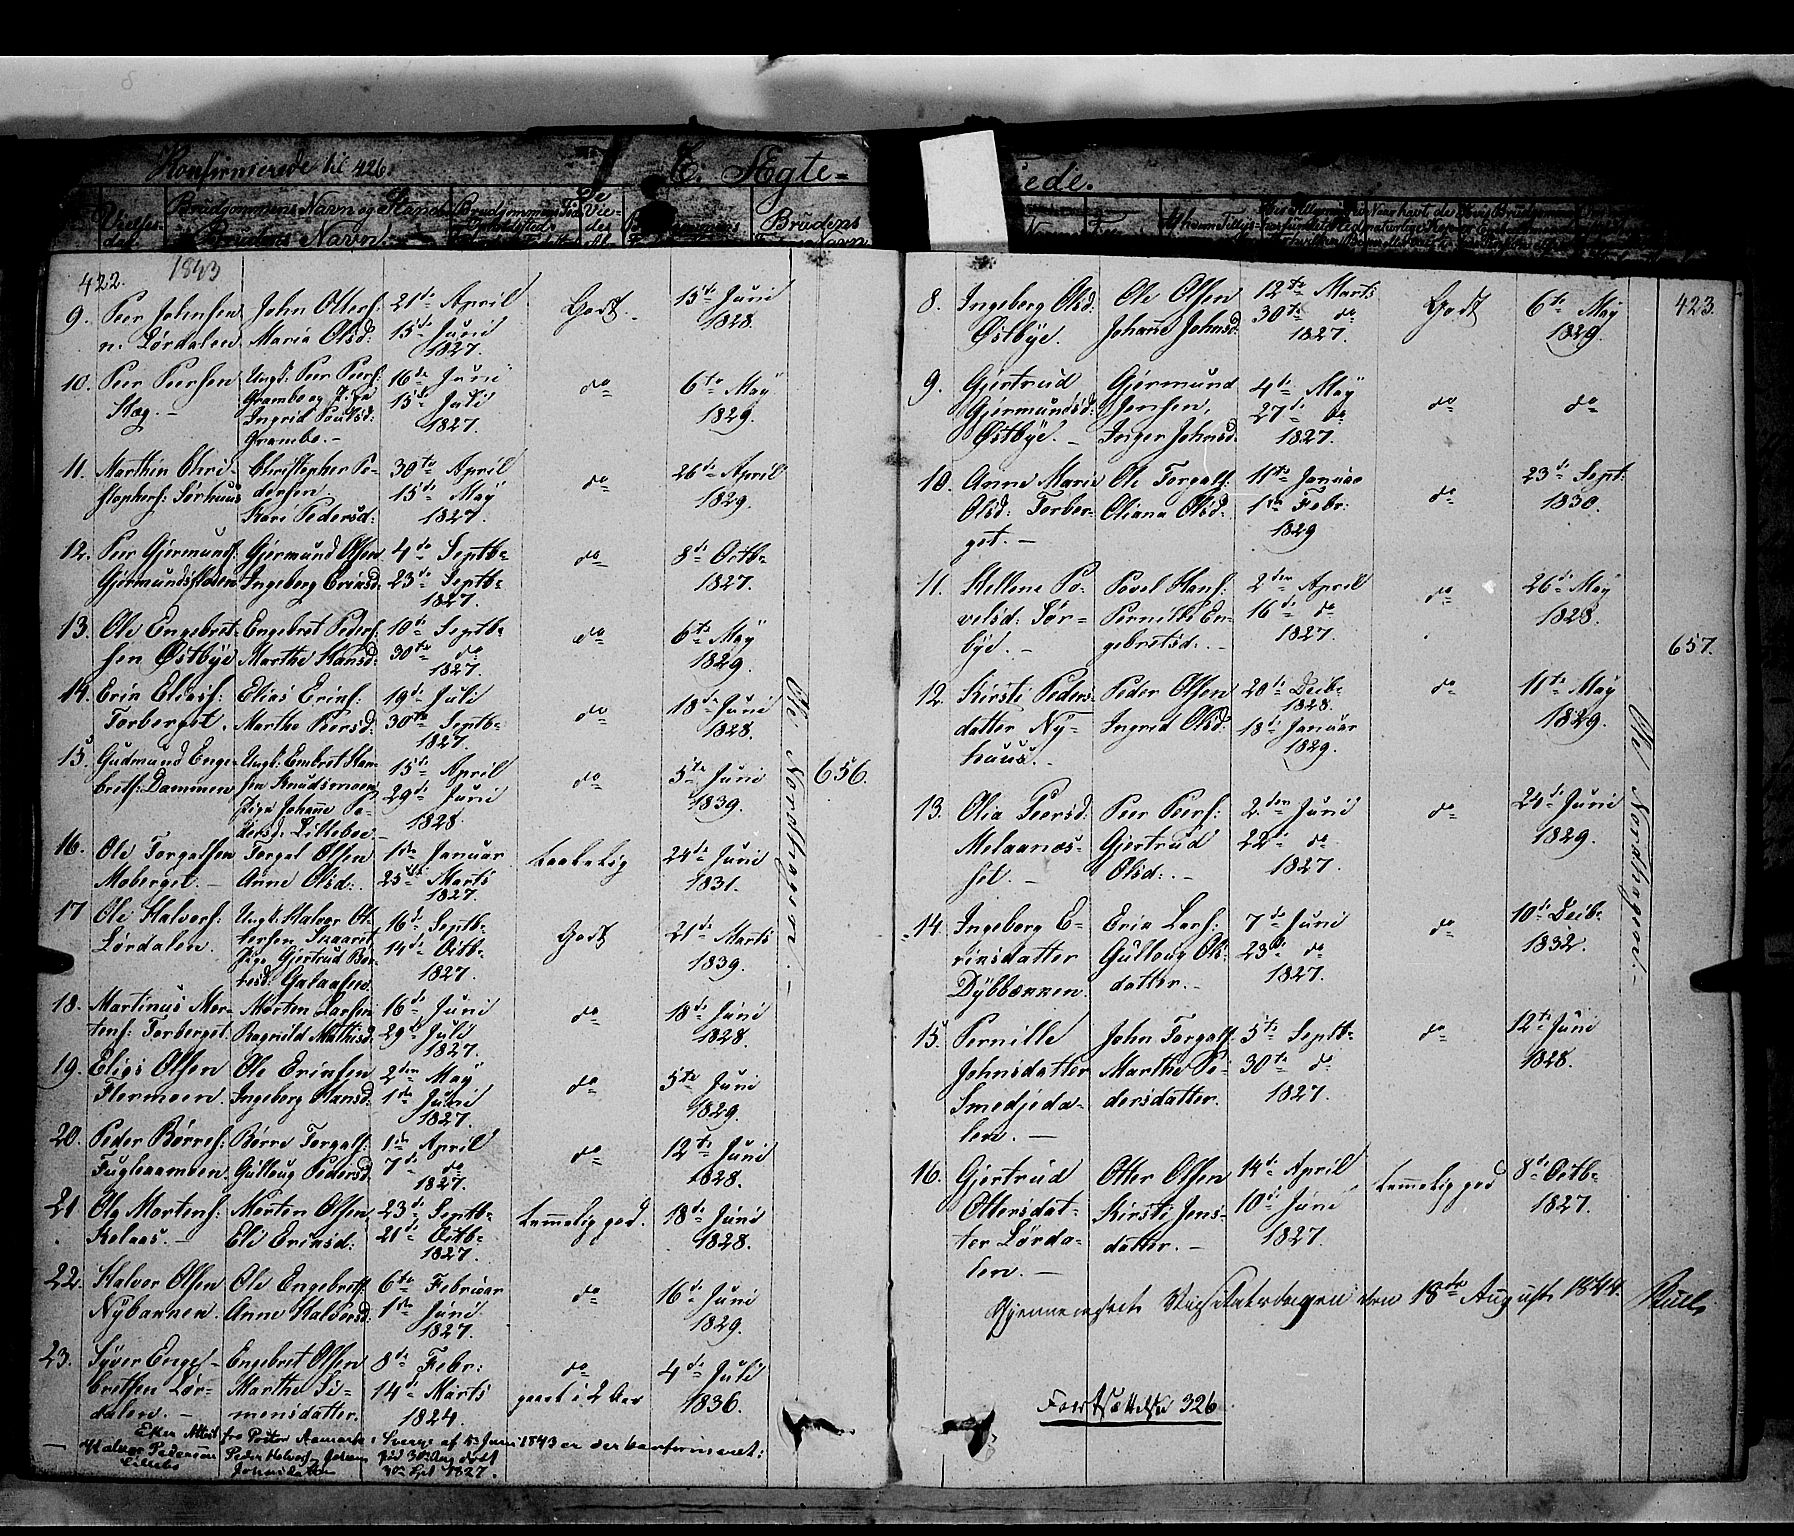 Konfirmerede til 426.
E. Ægte-
Vielses
dag
Brudgommens Navn og Stand
Brudens Navn
Brudens
422.
1843
9. Peer Johnsen
n. Lördalen
John Otters:
Maria Olsd:
21de April
15de Juni
1827.
Godt.
15de Juni
1828.
10. Peer Peersen
Kæg. -
Ungk: Peer Peers:
Grambo og Pige
Ingrid Poulsd:
Grambo. -
16de Juni
15de Juli
1827.
do
6te May
1829.
11. Marthin Chri-
stophers: Sörhuus
Christopher Pe-
dersen
Kari Pedersd:
30te April
15de May
1827.
do
26de April
1829.
12. Peer Gjermunds:
Gjermundsfloden
Gjermund Olsen
Ingeborg Ericsd:
4de Septb-
23de Septb-
1827.
do
8de Octb-
1827.
13. Ole Engebret-
sen Östbye
Engebret Peders:
Marthe Hansd:
10de Septb-
30te do
1827.
do
6te May
1829.
14. Eric Elias:
Torberget.
Elias Erics:
Marthe Peersd:
19de Juli
30te Septb-
1827.
do
18de Juni
1828.
15. Gudmund Enge-
brets: Dammen
Ungk: Embret Han-
sen Knudsmoen
Pige Johanne Pe-
dersd: Lilleboe -
15de April
29de Juni
1828.
do
5te Juni
1839.
16. Ole Torgalsen
Moberget. -
Torgal Olsen
Anne Olsd:
1ste Januar
25de Marts
1827.
taalelig
24de Juni
1831.
17 Ole Halvors:
Lördalen.
Ungk: Halvor Ol-
tersen
Pige Gjertrud Bör-
resd: Galaasen
16de Septb-
14de Octb-
1827.
Godt
21de Marts
1839.
18. Martinus Mor-
tens: Torberget.
Morten Larsen
Ragnild Mathisd:
16de Juni
29de Juli
1827.
do
18de Juni
1828.
19. Elias Olsen
Flermoen.
Ole Ericsen
Ingeborg Hansd:
2den May
1ste Juni
1827.
do
5te Juni
1829.
20. Peder Börres:
Fugleaamoen.
Börre Torgals:
Gulloug Pedersd.
1ste April
7de do
1827.
do
12te Juni
1828.
21 Ole Mortens:
Kolaas. -
Morten Olsen
Eli Ericsd:
23de Septb-
21de Octb-
1827.
temmelig god.
18de Juni
1828.
22. Halvor Olsen
Nybannen.
Ole Engebrets:
Anne Halvorsd:
6te Februar
1ste Juni
1827.
do
16de Juni
1829.
23. Syver Enge-
bretsen Lör-
dalen. -
Engebret Olsen
Marthe Si-
monsdatter.
8de Febr:
14de Marts
1824.
do
gaaet i 2 Aar
4de Juli
1836.
Efter Attest fra Pastor i Sverge af 13 Juni 1843 er der konfirmeret:
Halvor Pedersen
Lillebo
Peder Halvors,
Johnsdatter
fød 30te Aug døbt
30te Spt. 1827.
Nordhagen. -
656.
423.
8. Ingeborg Olsd:
Östbye.
Ole Olsen
Johanne Johnsd:
12te Marts
30te do
1827.
Godt
6te May
1829.
9. Gjertrud
Gjermundsd:
Östbye. -
Gjermund
Jensen,
Inger Johnsd:
4de May
27de do
1827.
do
do
10. Anne Marie
Olsd: Torber-
get. -
Ole Torgals:
Oliana Olsd:
11te Januar
1ste Febr:
1829
do
23de Sept:
1830.
11. Hellene Po-
velsd: Sör-
bye. -
Povel Hans:
Pernille En-
gebretsd: -
2den April
16de do
1827.
do
26de May
1828.
12. Kirsti Peders-
datter Ny-
huus. -
Peder Olsen
Ingrid Olsd:
20de Decb-
1828.
18de Januar
1829.
do
11te May
1829.
13. Olia Peersd:
Melaanes-
set. -
Peer Peers:
Gjertrud
Olsd: -
2den Juni
22de do
1827.
do
24de Juni
1829.
14. Ingeborg E-
ricsdatter
Dybbækken.
Eric Lars:
Gulloug Ols-
datter. -
7de Juni
23de do
1827.
do
10de Decb-
1832.
15. Pernille
Johnsdatter
Smedjeda-
len. -
John Torgals:
Marthe Pe-
dersdatter.
5te Septb-
30te do
1827.
do
12te Juni
1828.
16. Gjertrud
Ottersdat-
ter Lörda-
len. -
Otter Olsen
Kirsti Jens-
datter. -
14de April
10de Juni
1827.
temmelig god
8de Octb-
1827.
Nordhagen. -
657.
Gjennemseet Visitatsdagen den 18de August 1844.
Fortsættelse 326